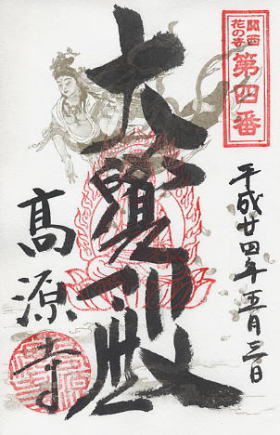 関西
花の寺
第四番
平成廿四年五月三日
大覺殿
高源寺